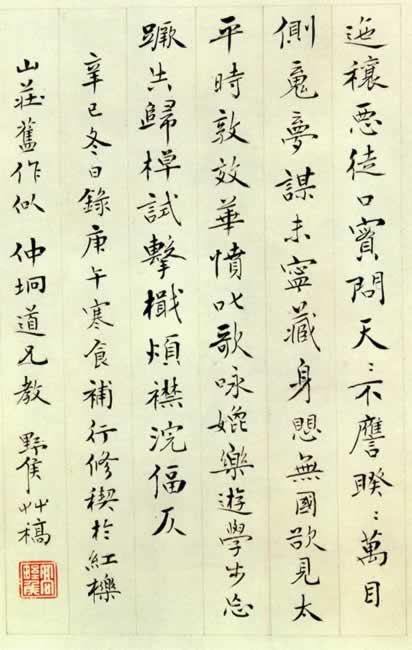 禳惡徒口實問天〻不譍睽〻萬目
側夢謀未寧藏身愳無國欲見太
平時敦效華憤歌咏樂遊學步忘
蹶去歸棹試擊檝煩襟浣偪仄
辛巳冬日錄庚午寒食補行修禊於紅櫟
山莊舊作似 仲坰道兄教 野侯艸稿